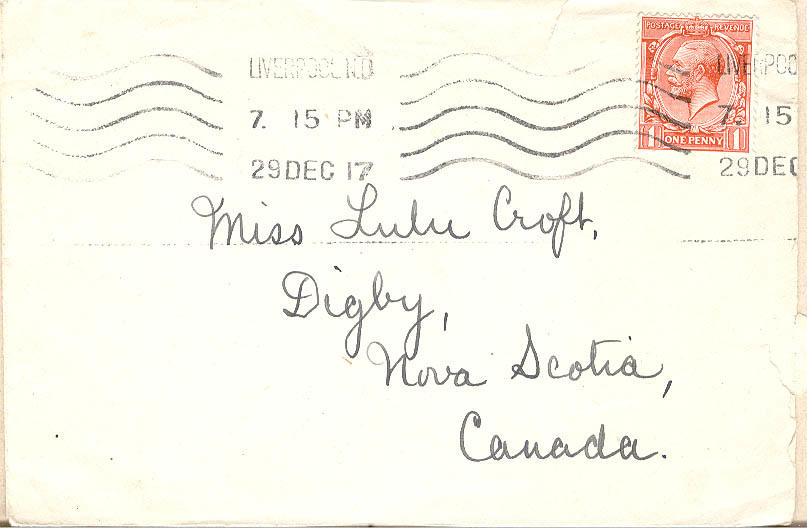 POSTAGE REVENUE
LIVERPOOL N.D
7. 15 PM
29 DEC 17
LIVERPOO
7. 15
29 DEC
1 ONE PENNY 1
Miss Lulu Croft,
Digby,
Nova Scotia,
Canada.